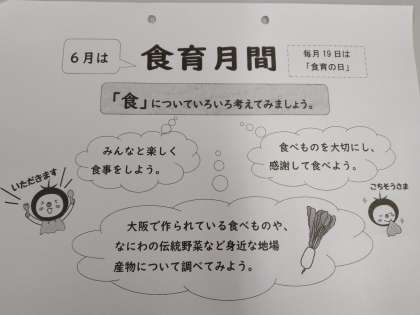 6月は
食育月間
毎月19日は
「食育の日」
「食」についていろいろ考えてみましょう。
みんなと楽しく
食事をしよう。
食べものを大切にし、
感謝して食べよう。
いただきます
ごちそうさま
大阪で作られている食べものや、
なにわの伝統野菜など身近な地場
産物について調べてみよう。